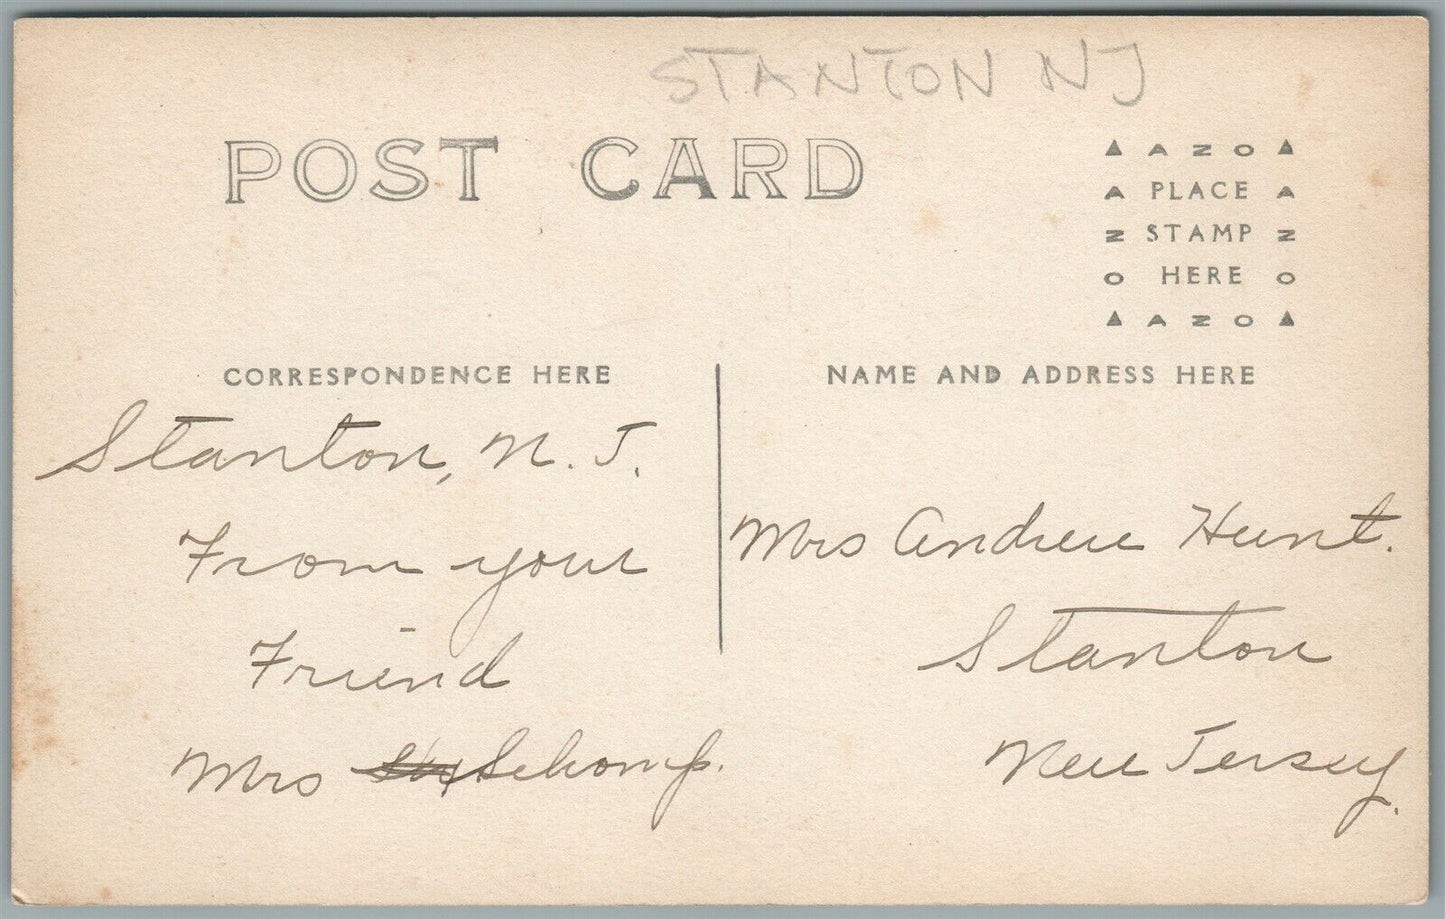 STANTON NJ
POST CARD
▲ A Z O ▲
A PLACE A
Z STAMP Z
O HERE O
▲ A Z O ▲
CORRESPONDENCE HERE
Stanton, N. J.
From your
Friend
Mrs Schomp.
NAME AND ADDRESS HERE
Mrs Andrew Hunt.
Stanton
New Jersey.